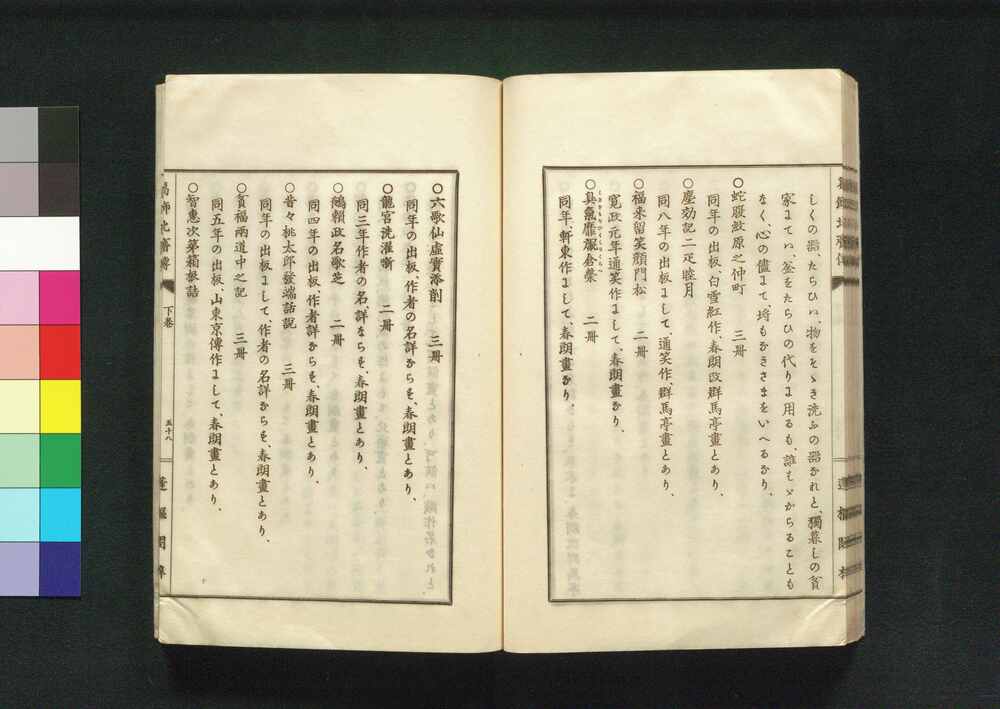 しくの器、たらひハ、物をそゝき洗ふの器なれと、獨暮しの貧
家にてハ、釜をたらひの代りに用るも、誰もゝからることも
なく、心の儘にて、埒もなきさまをいへるなり、
○蛇腹紋原之仲町　三冊
同年の出板、白雪紅作、春朗改群馬亭畫とあり、
○塵劫記二疋睦月
同八年の出板にして、通笑作、群馬亭畫とあり、
○福来留笑顔門松　二冊
寛政元年通笑作にして、春朗畫なり、
倉粲　二冊
同年、軒東作にして、春朗畫なり、
○六歌仙虚實添削　三冊
同年の出板、作者の名詳ならす、春朗畫とあり、
○龍宮洗濯噺　二冊
同三年作者の名、詳ならす、春朗畫とあり、
○鵺頼政名歌芝　二冊
同四年の出板、作者詳ならす、春朗畫とあり、
○昔々桃太郎發端話説　三冊
同年の出板にして、作者の名詳ならす、春朗畫とあり、
○貧福兩道中之記　三冊
同五年の出板、山東京傳作にして、春朗畫とあり、
○智惠次第箱根詰
葛飾北齋傳
下巻
五十八
蓬樞閣梓